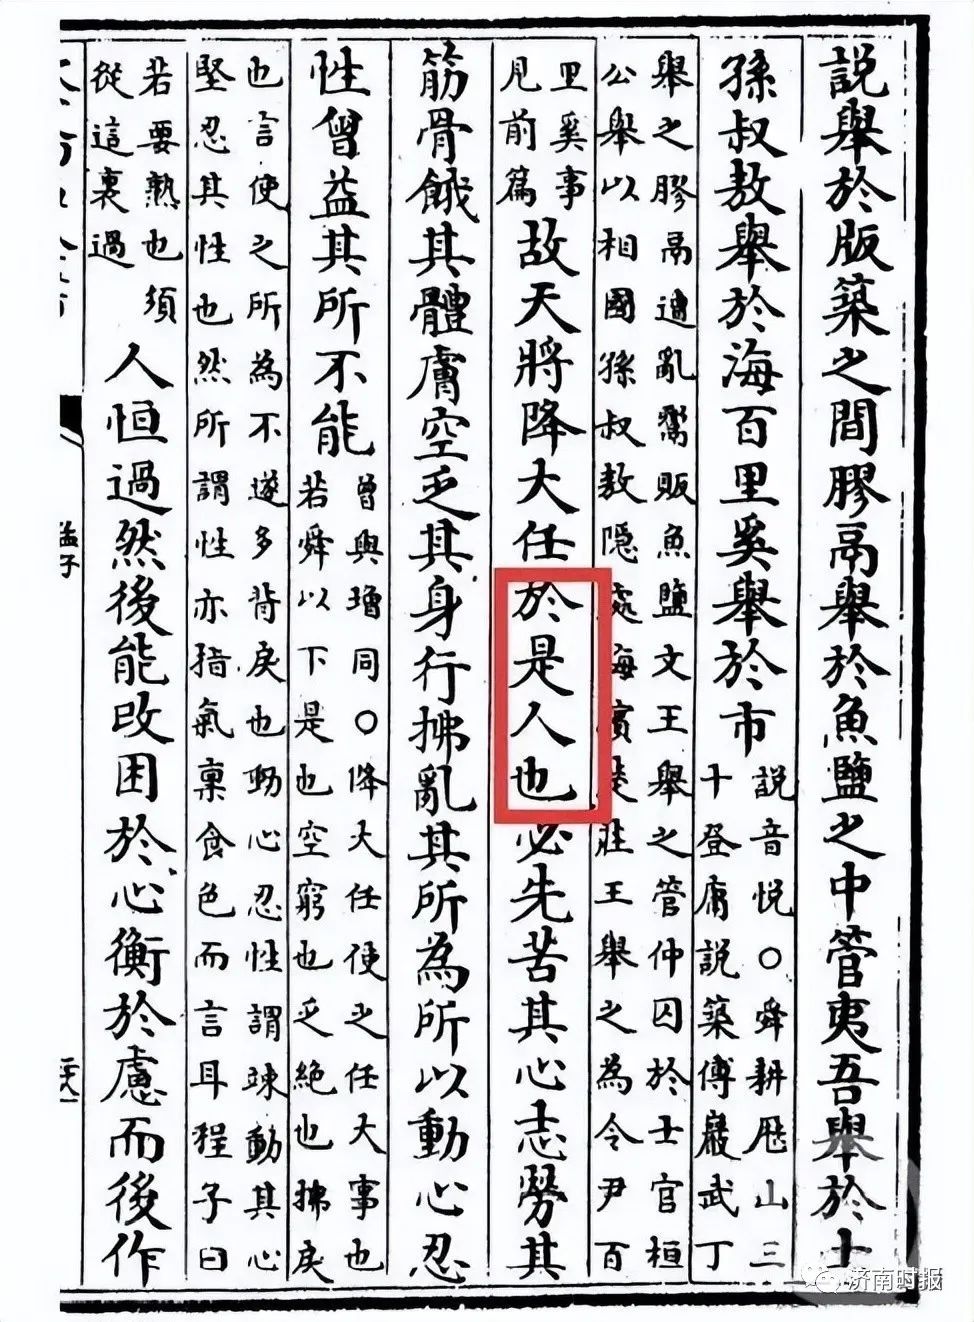 説舉於版築之間膠鬲舉於魚鹽之中管夷吾舉於士
孫叔敖舉於海百里奚舉於市
説音悦○舜耕歷山三
十登庸説築傅巖武丁
舉之膠鬲遭亂鬻販魚鹽文王舉之管仲囚於士官桓
公舉以相國孫叔敖隱處海濱楚莊王舉之為令尹百
里奚事
見前篇
故天將降大任於是人也必先苦其心志勞其
筋骨餓其體膚空乏其身行拂亂其所為所以動心忍
性曾益其所不能
曾與增同○降大任使之任大事也
若舜以下是也空窮也乏絶也拂戾
也言使之所為不遂多背戾也動心忍性謂竦動其心
堅忍其性也然所謂性亦指氣稟食色而言耳程子曰
若要熟也須
從這裏過
人恒過然後能改困於心衡於慮而後作
孟子
济南时报